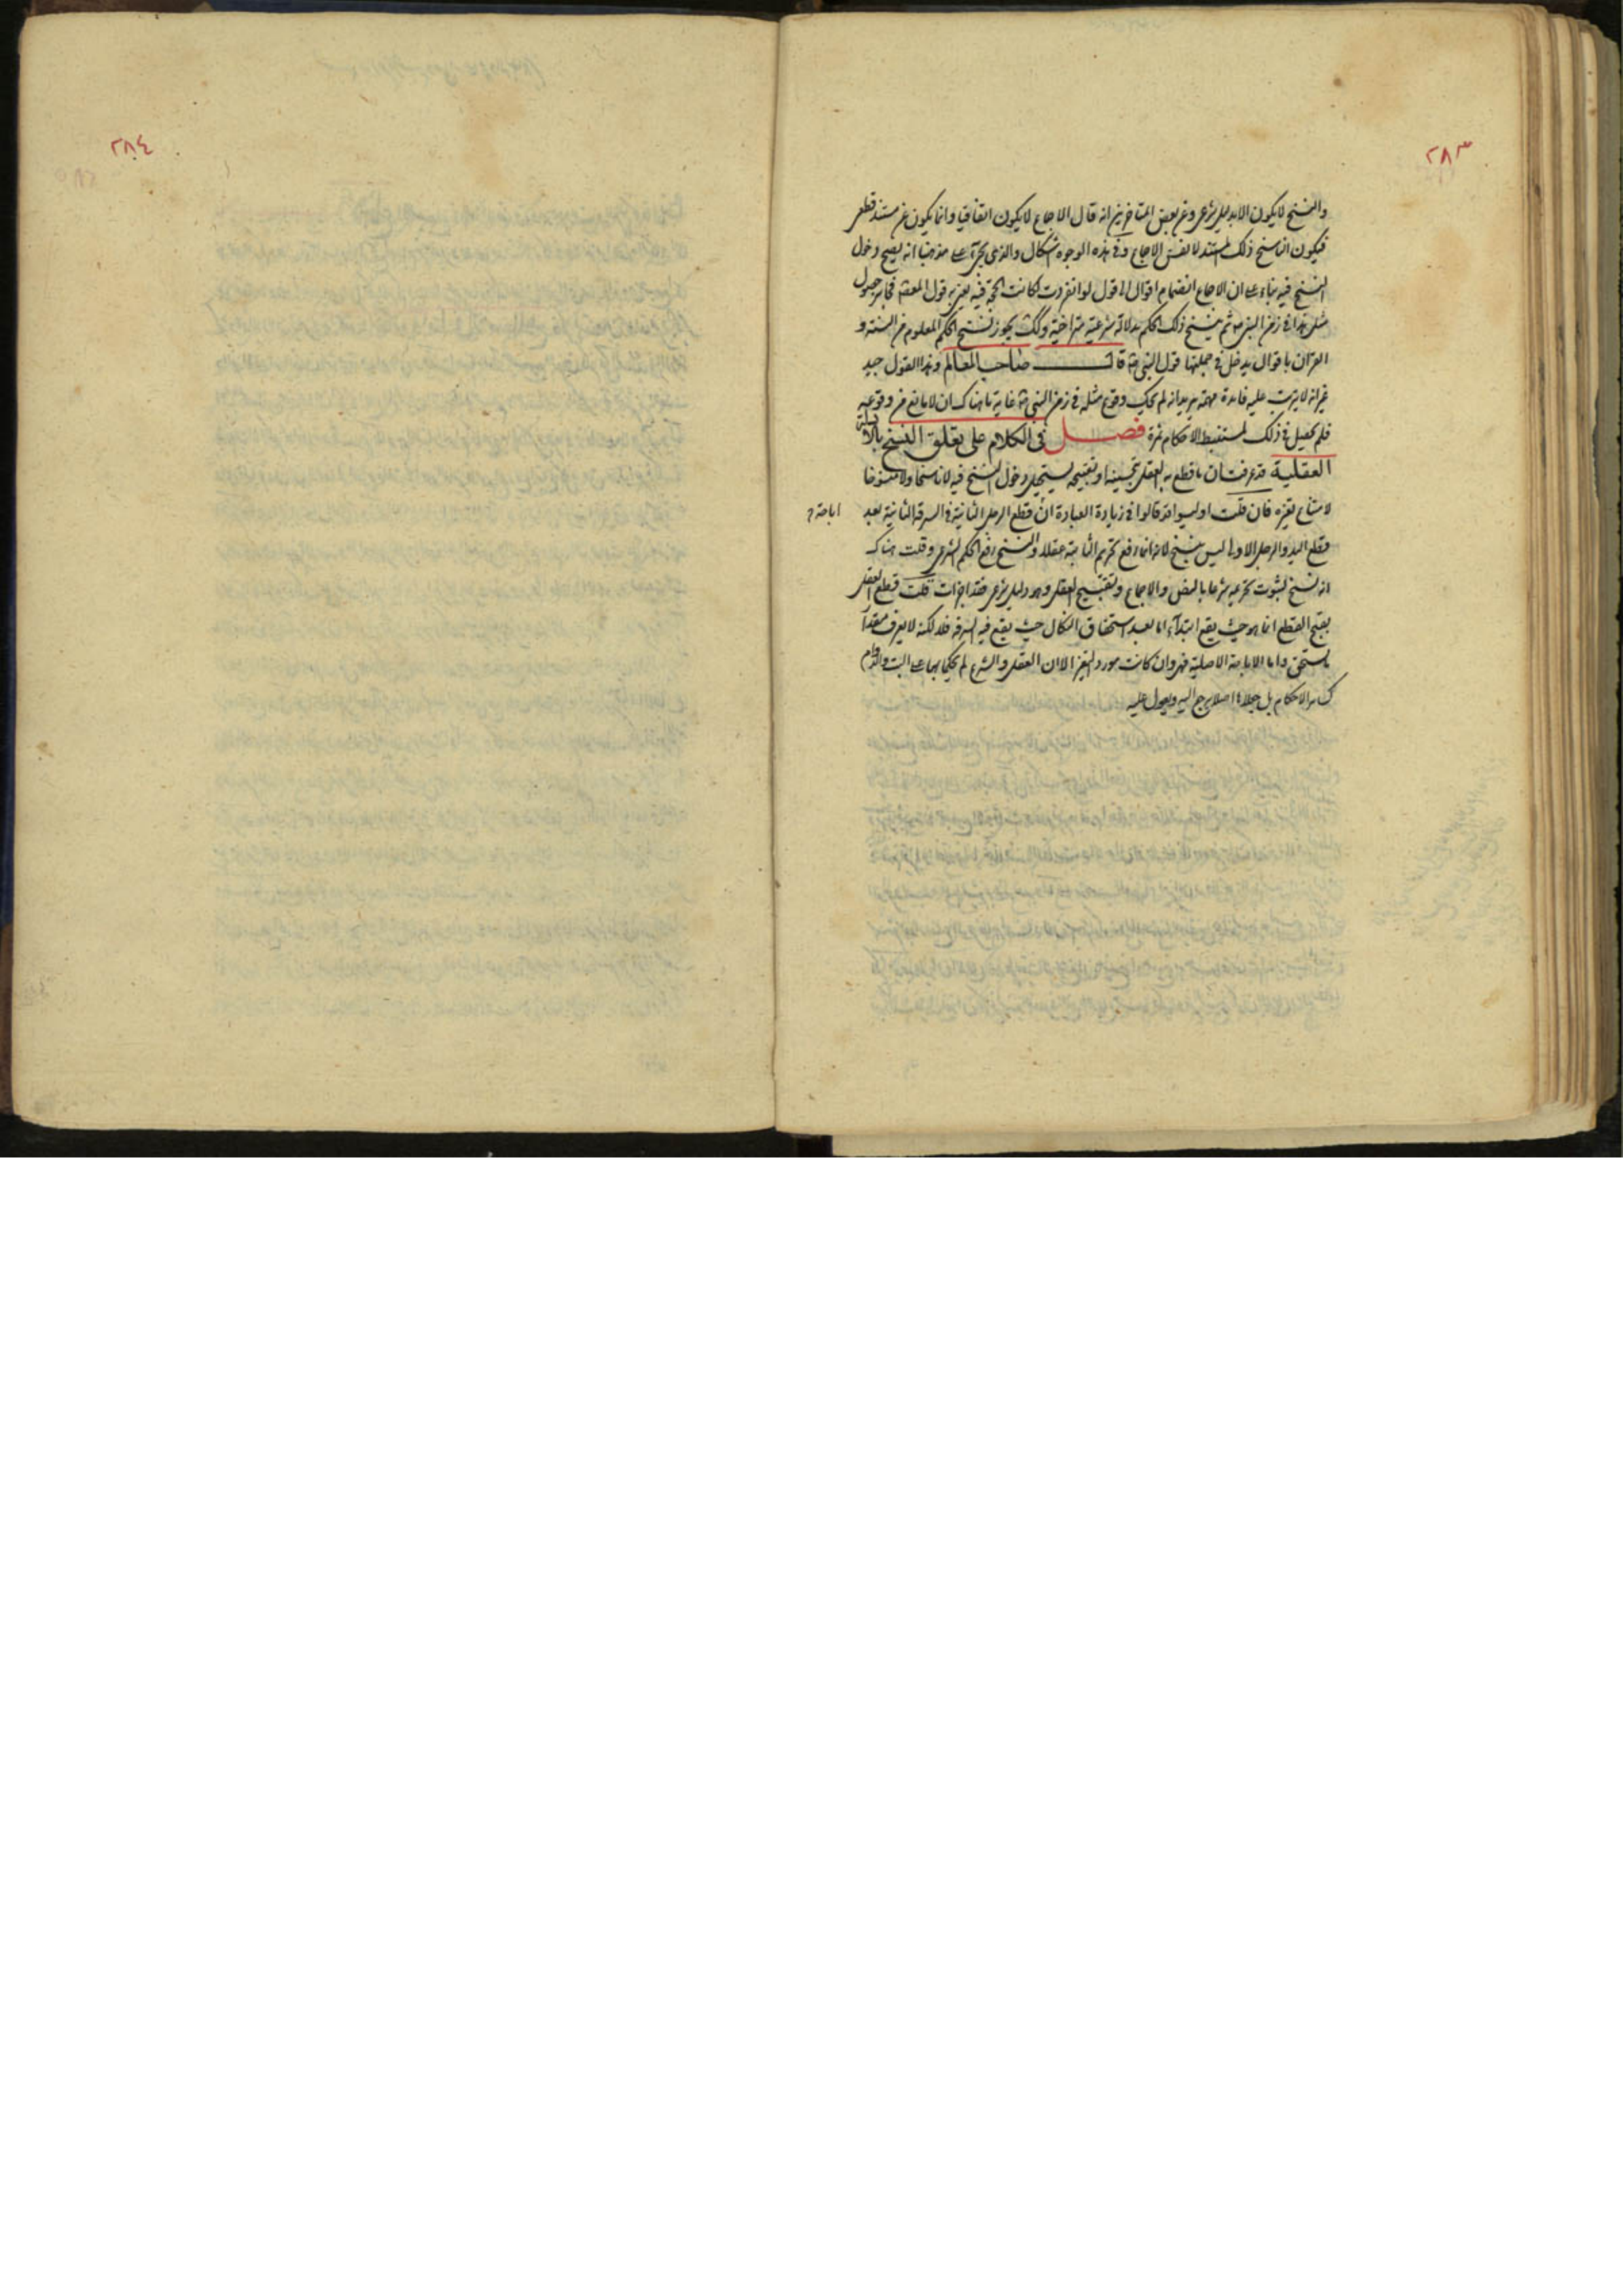 ٢٨٣
والنسخ لا يكون الا بدليل شرعي وعن بعض المتاخرين انه قال الاجماع لا يكون اتفاقيا وانما يكون عن مستند قطعي
فيكون الناسخ ذلك المستند لا نفس الاجماع وفي هذه الوجوه اشكال والذي يجئ على مذهبنا انه يصح دخول
النسخ فيه بناء على ان الاجماع انضمام اقوال الى قول لو انفردت لكانت الحجة فيه فجايز حصول
مثل هذا في زمن النبي ص ثم ينسخ ذلك الحكم بدلالة شرعية متراخية وكك يجوز نسخ الحكم المعلوم من السنة و
القران باقوال يدخل في جملتها قول النبي ص قال صاحب المعالم وهذا القول جيد
غير انه لا يترتب عليه فايدة مهمة يريد انه لم يحك وقوع مثله في زمن النبي ص غاية ما هناك ان لا مانع من وقوعه
فلم يحصل في ذلك لمستنبط الاحكام ثمرة فصل في الكلام على تعلق النسخ بالا
العقلية قد عرفت ان ما قطع به العقل بتحسينه او تقبيحه يستحيل دخول النسخ فيه لا ناسخا ولا منسوخا
لامتناع تغيره فان قلت اوليسوا قد قالوا في زيادة العبادة ان قطع الرجل الثانية في السرقة الثانية بعد
اباحته
قطع اليد والرجل الاولى ليس بنسخ لانه انما رفع تحريم الثابتة عقلا والنسخ رفع الحكم الشرعي وقلت هناك
انه نسخ لثبوت تحريمه شرعا بالنص والاجماع وتقبيح العقل وهو دليل شرعي قلت قطع العقل
بقبح القطع انما هو حيث يقع ابتداء اما بعد استحقاق النكال حيث يقع فيه السرقة فلا لكنه لا يعرف مقدار
ما يستحق واما الاباحة الاصلية فهي وان كانت مورد التغير الا ان العقل والشرع لم يحكما بها على البت والدوام
كساير الاحكام بل جعلاها اصلا يرجع اليه ويعول عليه
٢٨٤